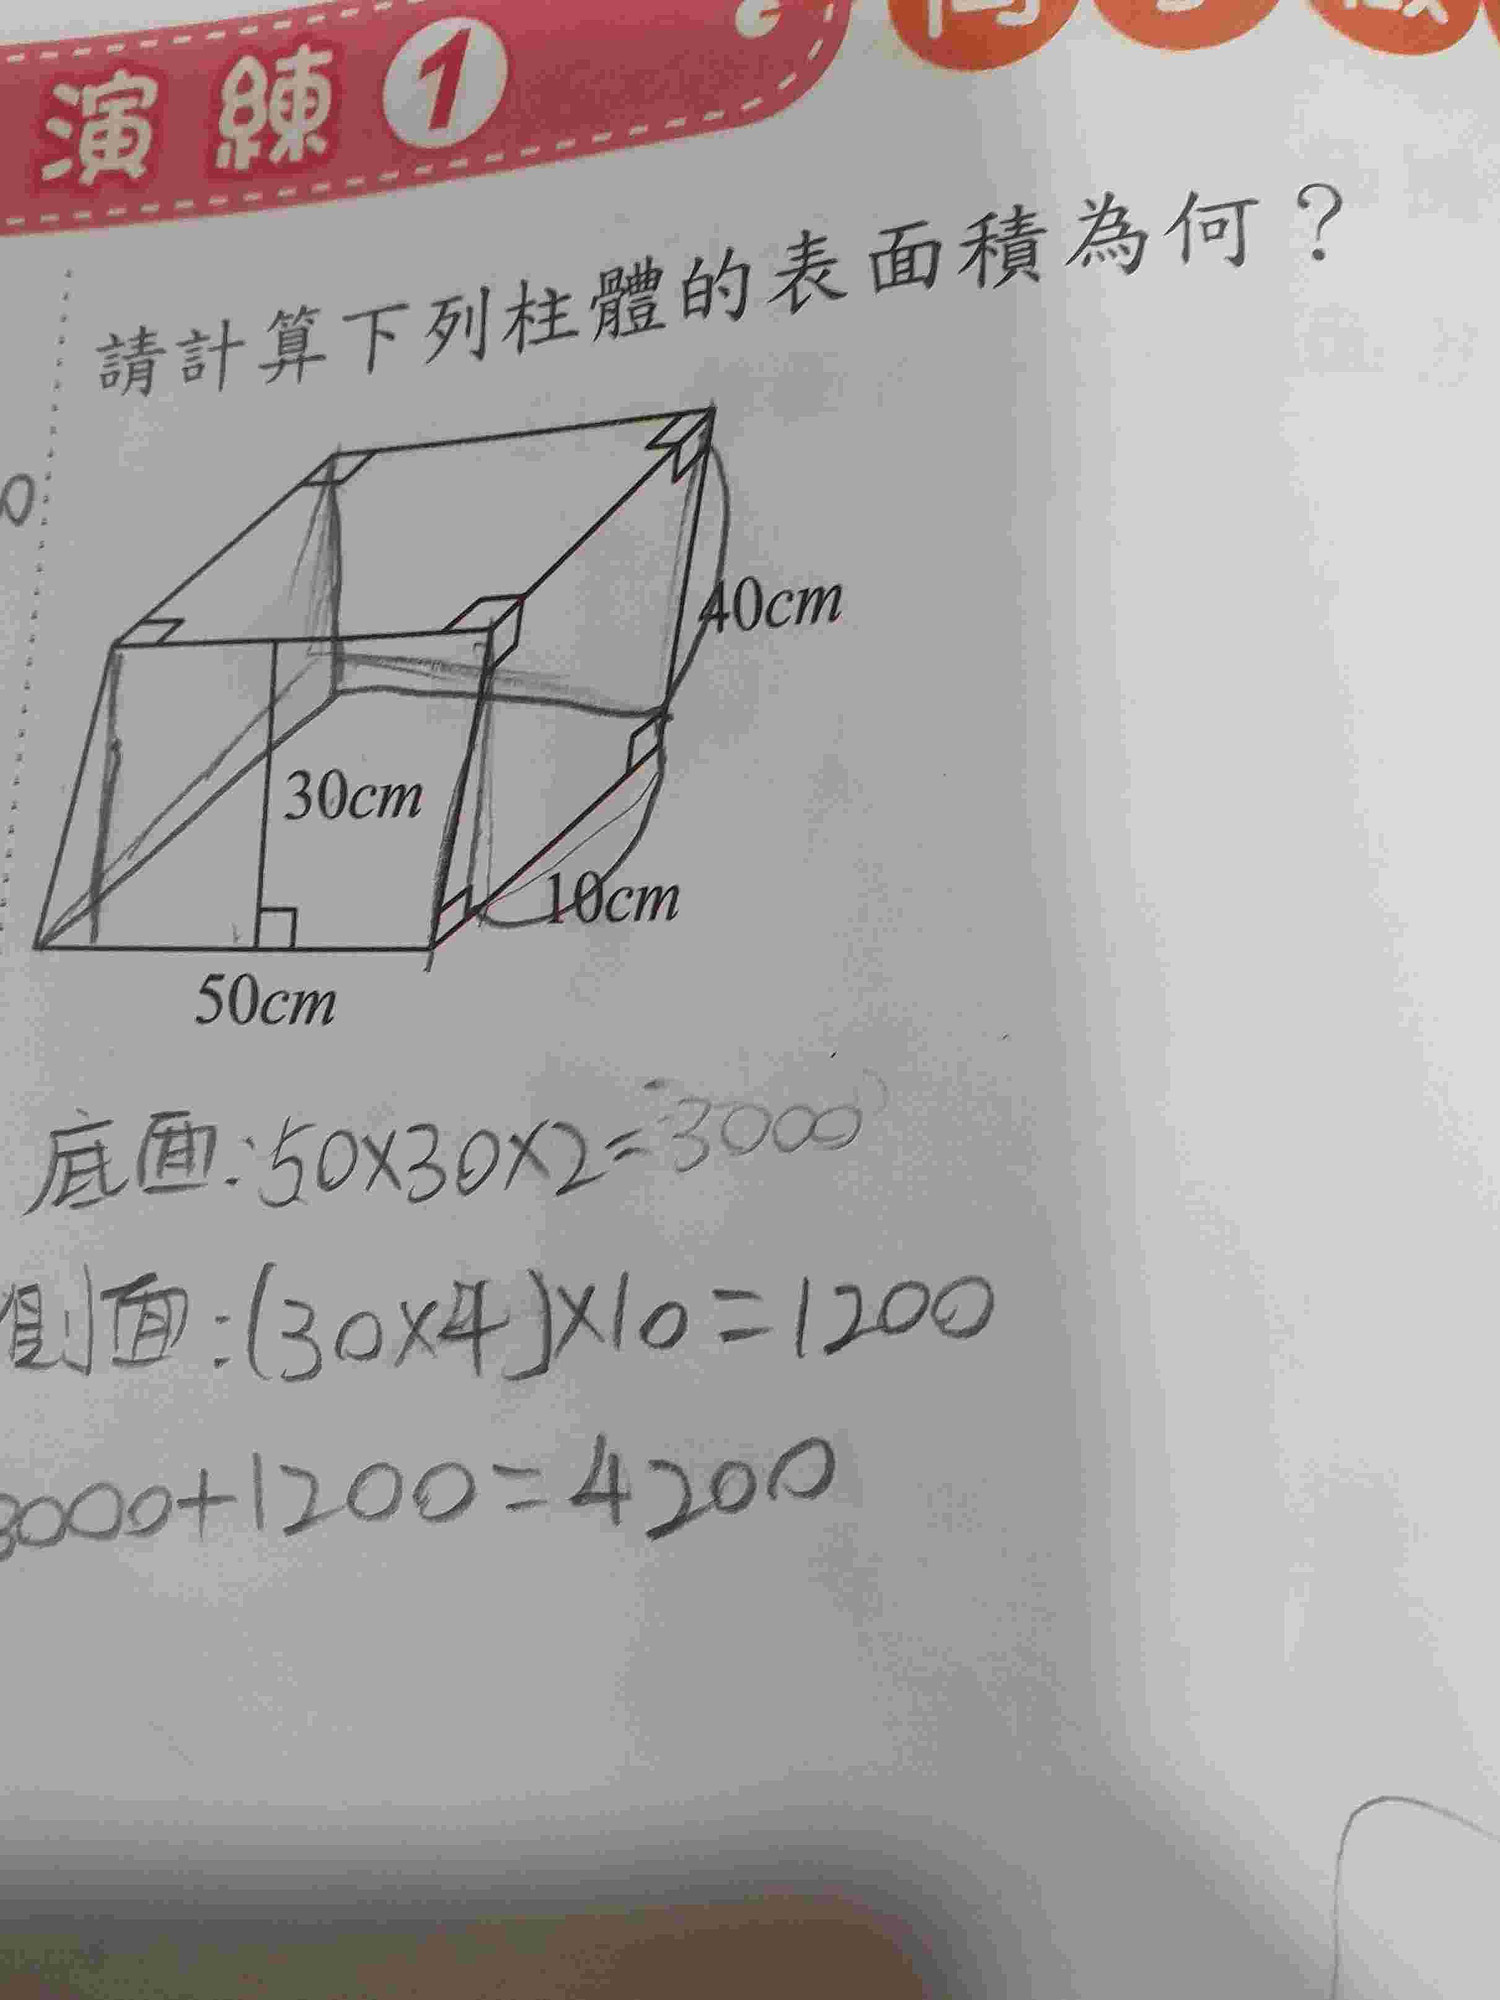 演練1
請計算下列柱體的表面積為何？
40cm
30cm
10cm
50cm
底面:50×30×2=3000
側面:(30×4)×10=1200
3000+1200=4200